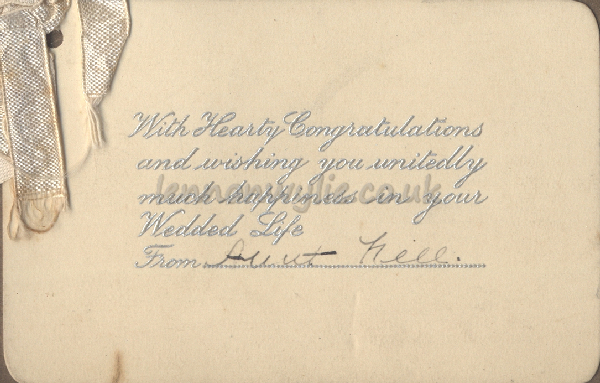 With Hearty Congratulations
and wishing you unitedly
much happiness in your
lennonwylie.co.uk
Wedded Life
From Aunt Nell.